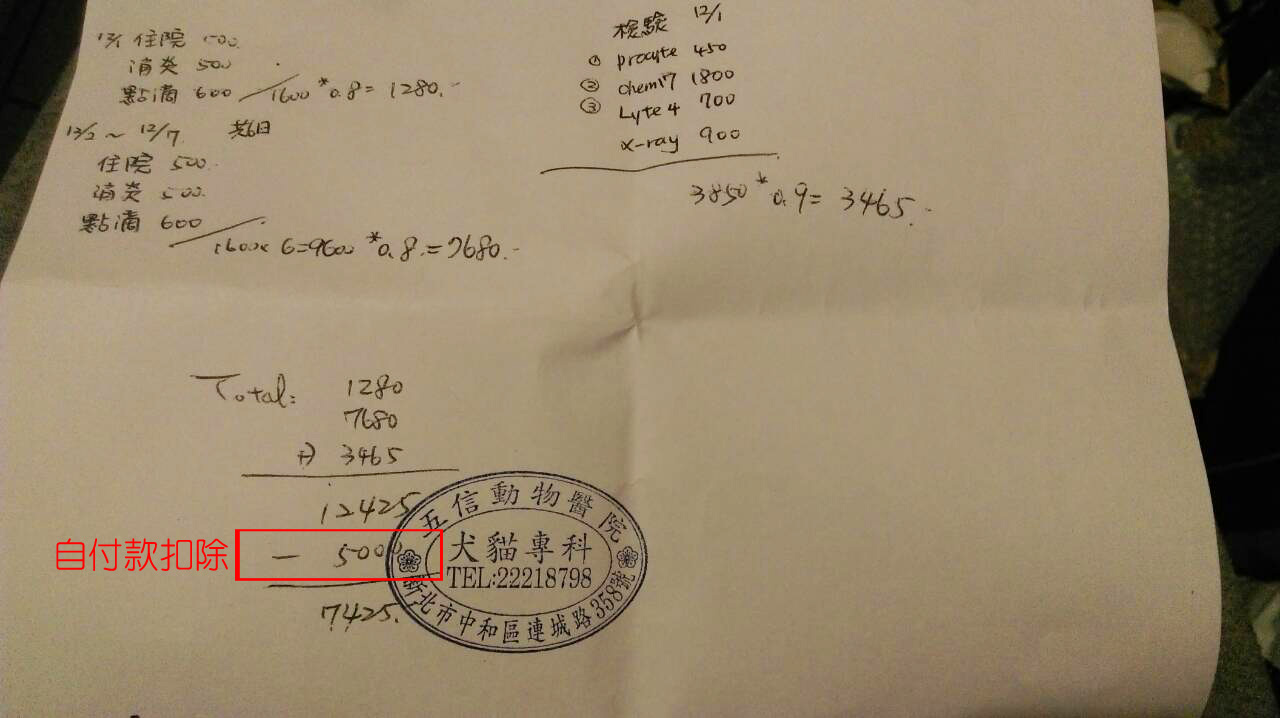 12/1 住院 500.
消炎 500
點滴 600 / 1600 * 0.8 = 1280.-
12/2 ~ 12/7 共6日
住院 500.
消炎 500.
點滴 600
1600 x 6 = 9600 * 0.8. = 7680.-
檢驗 12/1
① procyte 450
② chem17 1800
③ Lyte 4 700
x-ray 900
3850 * 0.9 = 3465.-
Total: 1280
7680
+) 3465
12425
自付款扣除 — 5000
7425.
五信動物醫院
犬貓專科
TEL:22218798
新北市中和區連城路358號